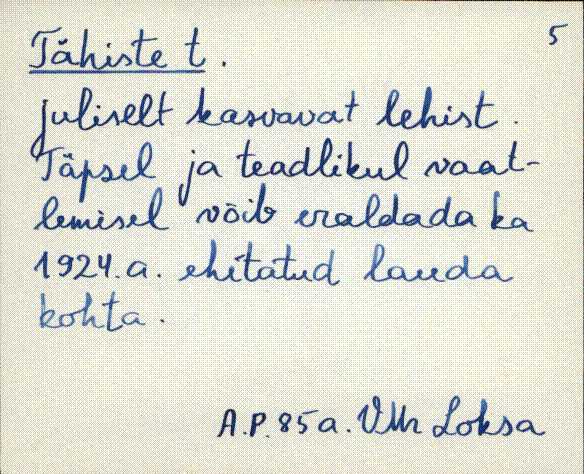 5
Tähiste t.
juliselt kasvavat lehist.
Täpsel ja teadlikul vaat-
lemisel võib eraldada ka
1924.a. ehitatud lauda
kohta.
A.P. 85a. Loksa